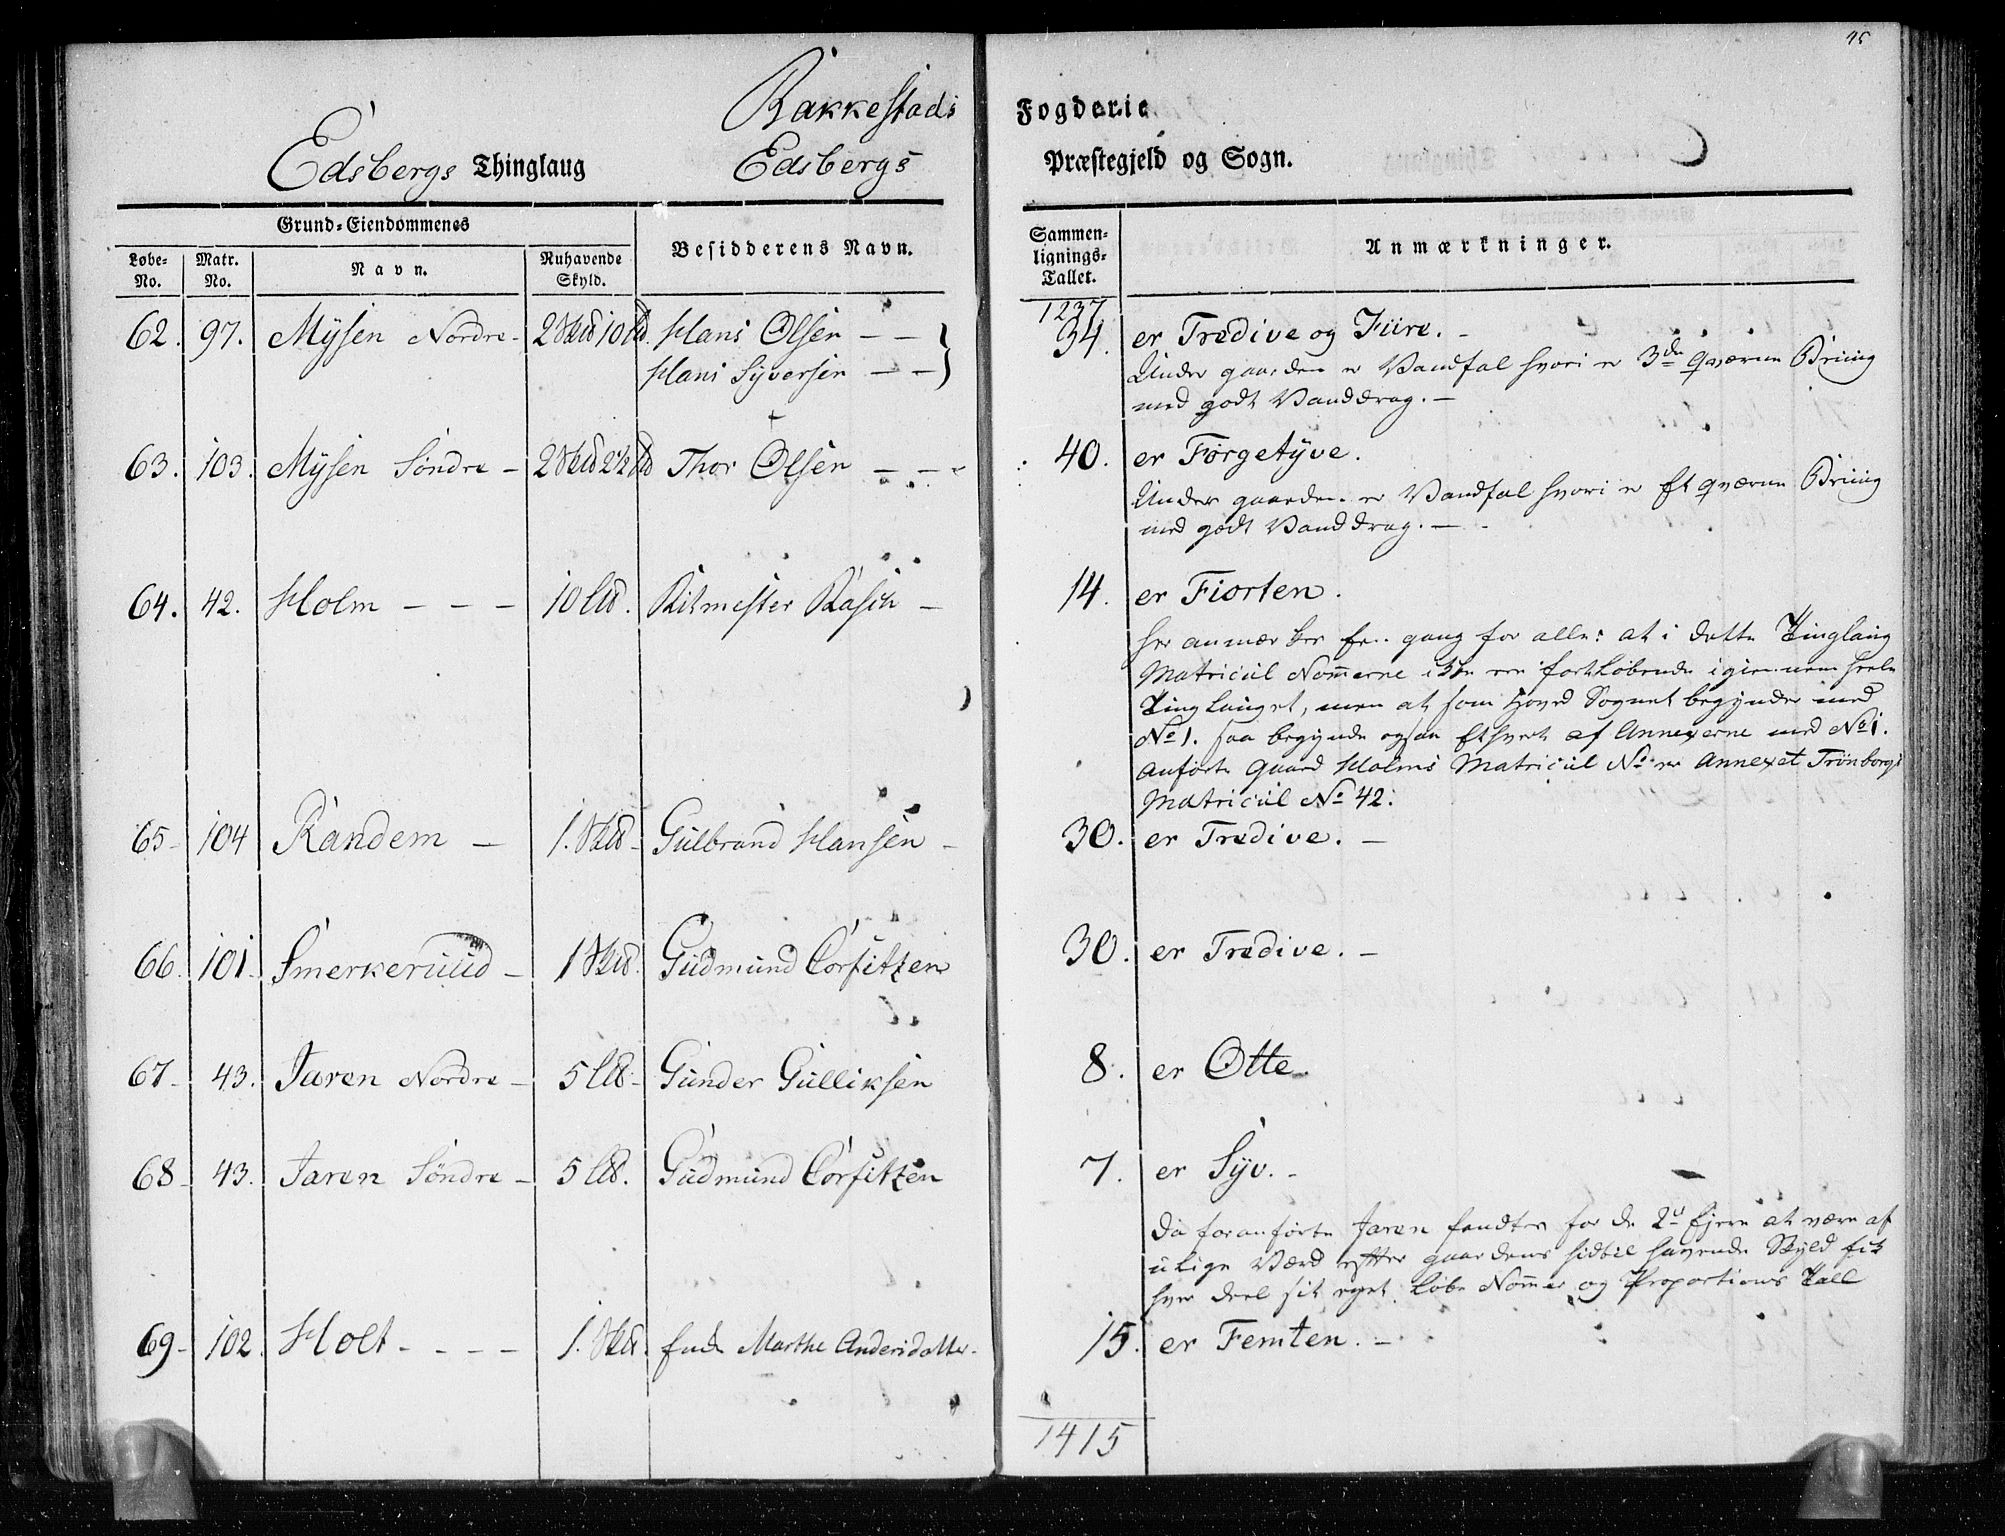 95
Rakkestads Fogderie
Edsbergs Thinglaug Edsbergs Præstegjeld og Sogn.
Grund-Eiendommenes
Løbe-No. Matr. No. Navn. Nuhavende Skyld. Besidderens Navn. Sammenlignings-Tallet. Anmærkninger.
1237
62. 97. Mÿsen Nordre - 2 Skd 10 Ld. Hans Olsen - - 34. er Tredive og Fiire. -
Hans Syversen - - Under gaarden er Vandfal hvori er 3de qværne Bruug
med godt Vanddrag. -
63. 103. Mÿsen Söndre - 2 Skd 2½ Ld Thor Olsen - - - 40. er Førgetÿve.
Under gaarden er Vandfal hvori er Et qværne Bruug
med godt Vanddrag. -
64. 42. Holm - - - 10 Ld. Ritmester Rasch - 14. er Fiorten.
her anmærkes Een gang for alle: at i dette Tinglaug
Matricul Nommerne ikke ere fortløbende igiennem heele
Tinglauget, men at som Hoved Sognet begynder med
No 1. saa begynde ogsaa Ethvert af Annexerne med No 1.
Anførte Gaard Holms Matricul No er Annexet Trönborgs
Matricul No 42.
65 - 104 Randem - 1. Skd - Gulbrand Hansen - 30. er Tredive. -
66. 101. Smerkeruud - 1 Skd. Gudmund Corfitzen 30. er Tredive. -
67 - 43. Jaren Nordre - 5 Ld - Gunder Gulliksen 8. er Otte.
68 - 43. Jaren Söndre - 5 Ld. Gudmund Corfitzen 7. er Sÿv. -
Da foranførte Jaren fandtes for de 2de Ejere at være af
ulige Værd efter gaardens hidtil havende Skyld fik
hver Deel sit eget Løbe Nommer og Proportions Tall
69 - 102. Holt - - - - 1. Skd. Enke Marthe Andersdatter - 15. er Femten. -
1415